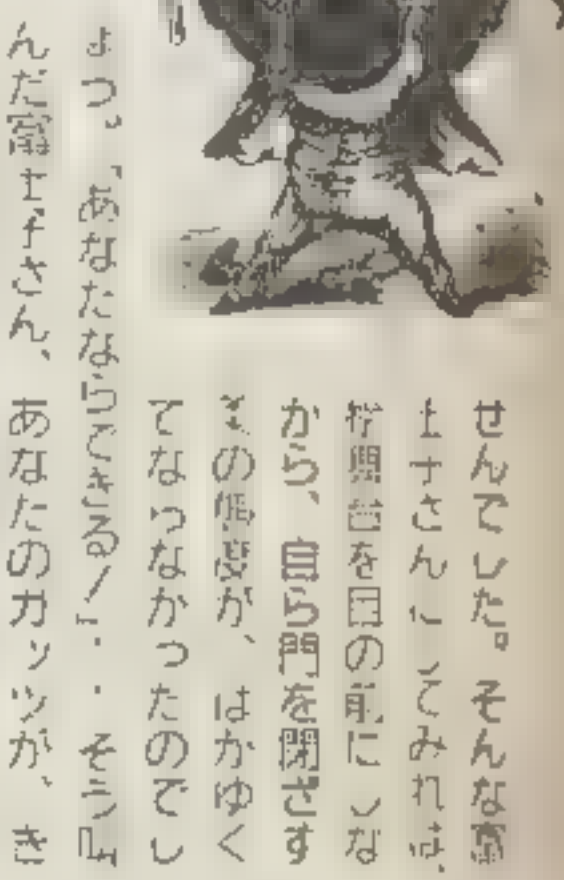 せんでした。そんな富
士子さんにしてみれば、
桴興台を目の前にしな
から、自ら門を閉ざす
その態度が、はがゆく
てならなかったのでし
ょう。「あなたならできる！」・・そう叫
んだ富士子さん、あなたのガッツが、き